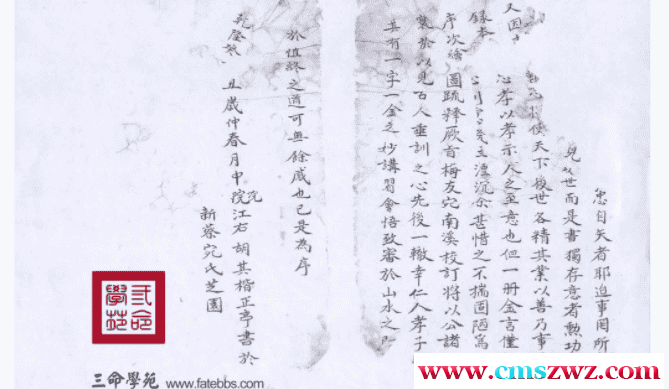 自矢者耶迨事罔所
世而是書獨存意者勳功
使天下後世各精其業以善乃事
心孝以孝示人之至意也但一冊金言僅
又因
錄本
湮沉余甚惜之不揣固陋寫
序次繪圖疏釋厥旨梅友宛南溪校訂將以公諸
業於以見古人垂訓之心先後一轍幸仁人孝子
其有一字一金之妙講習會悟致審於山水之
於值終之道可無餘慼也已是為序
丑歲仲春月中浣江右胡其楷正亭書於
新蔡宛氏芝園
三命學苑
三命學苑 www.fatebbs.com
www.cmszwz.com